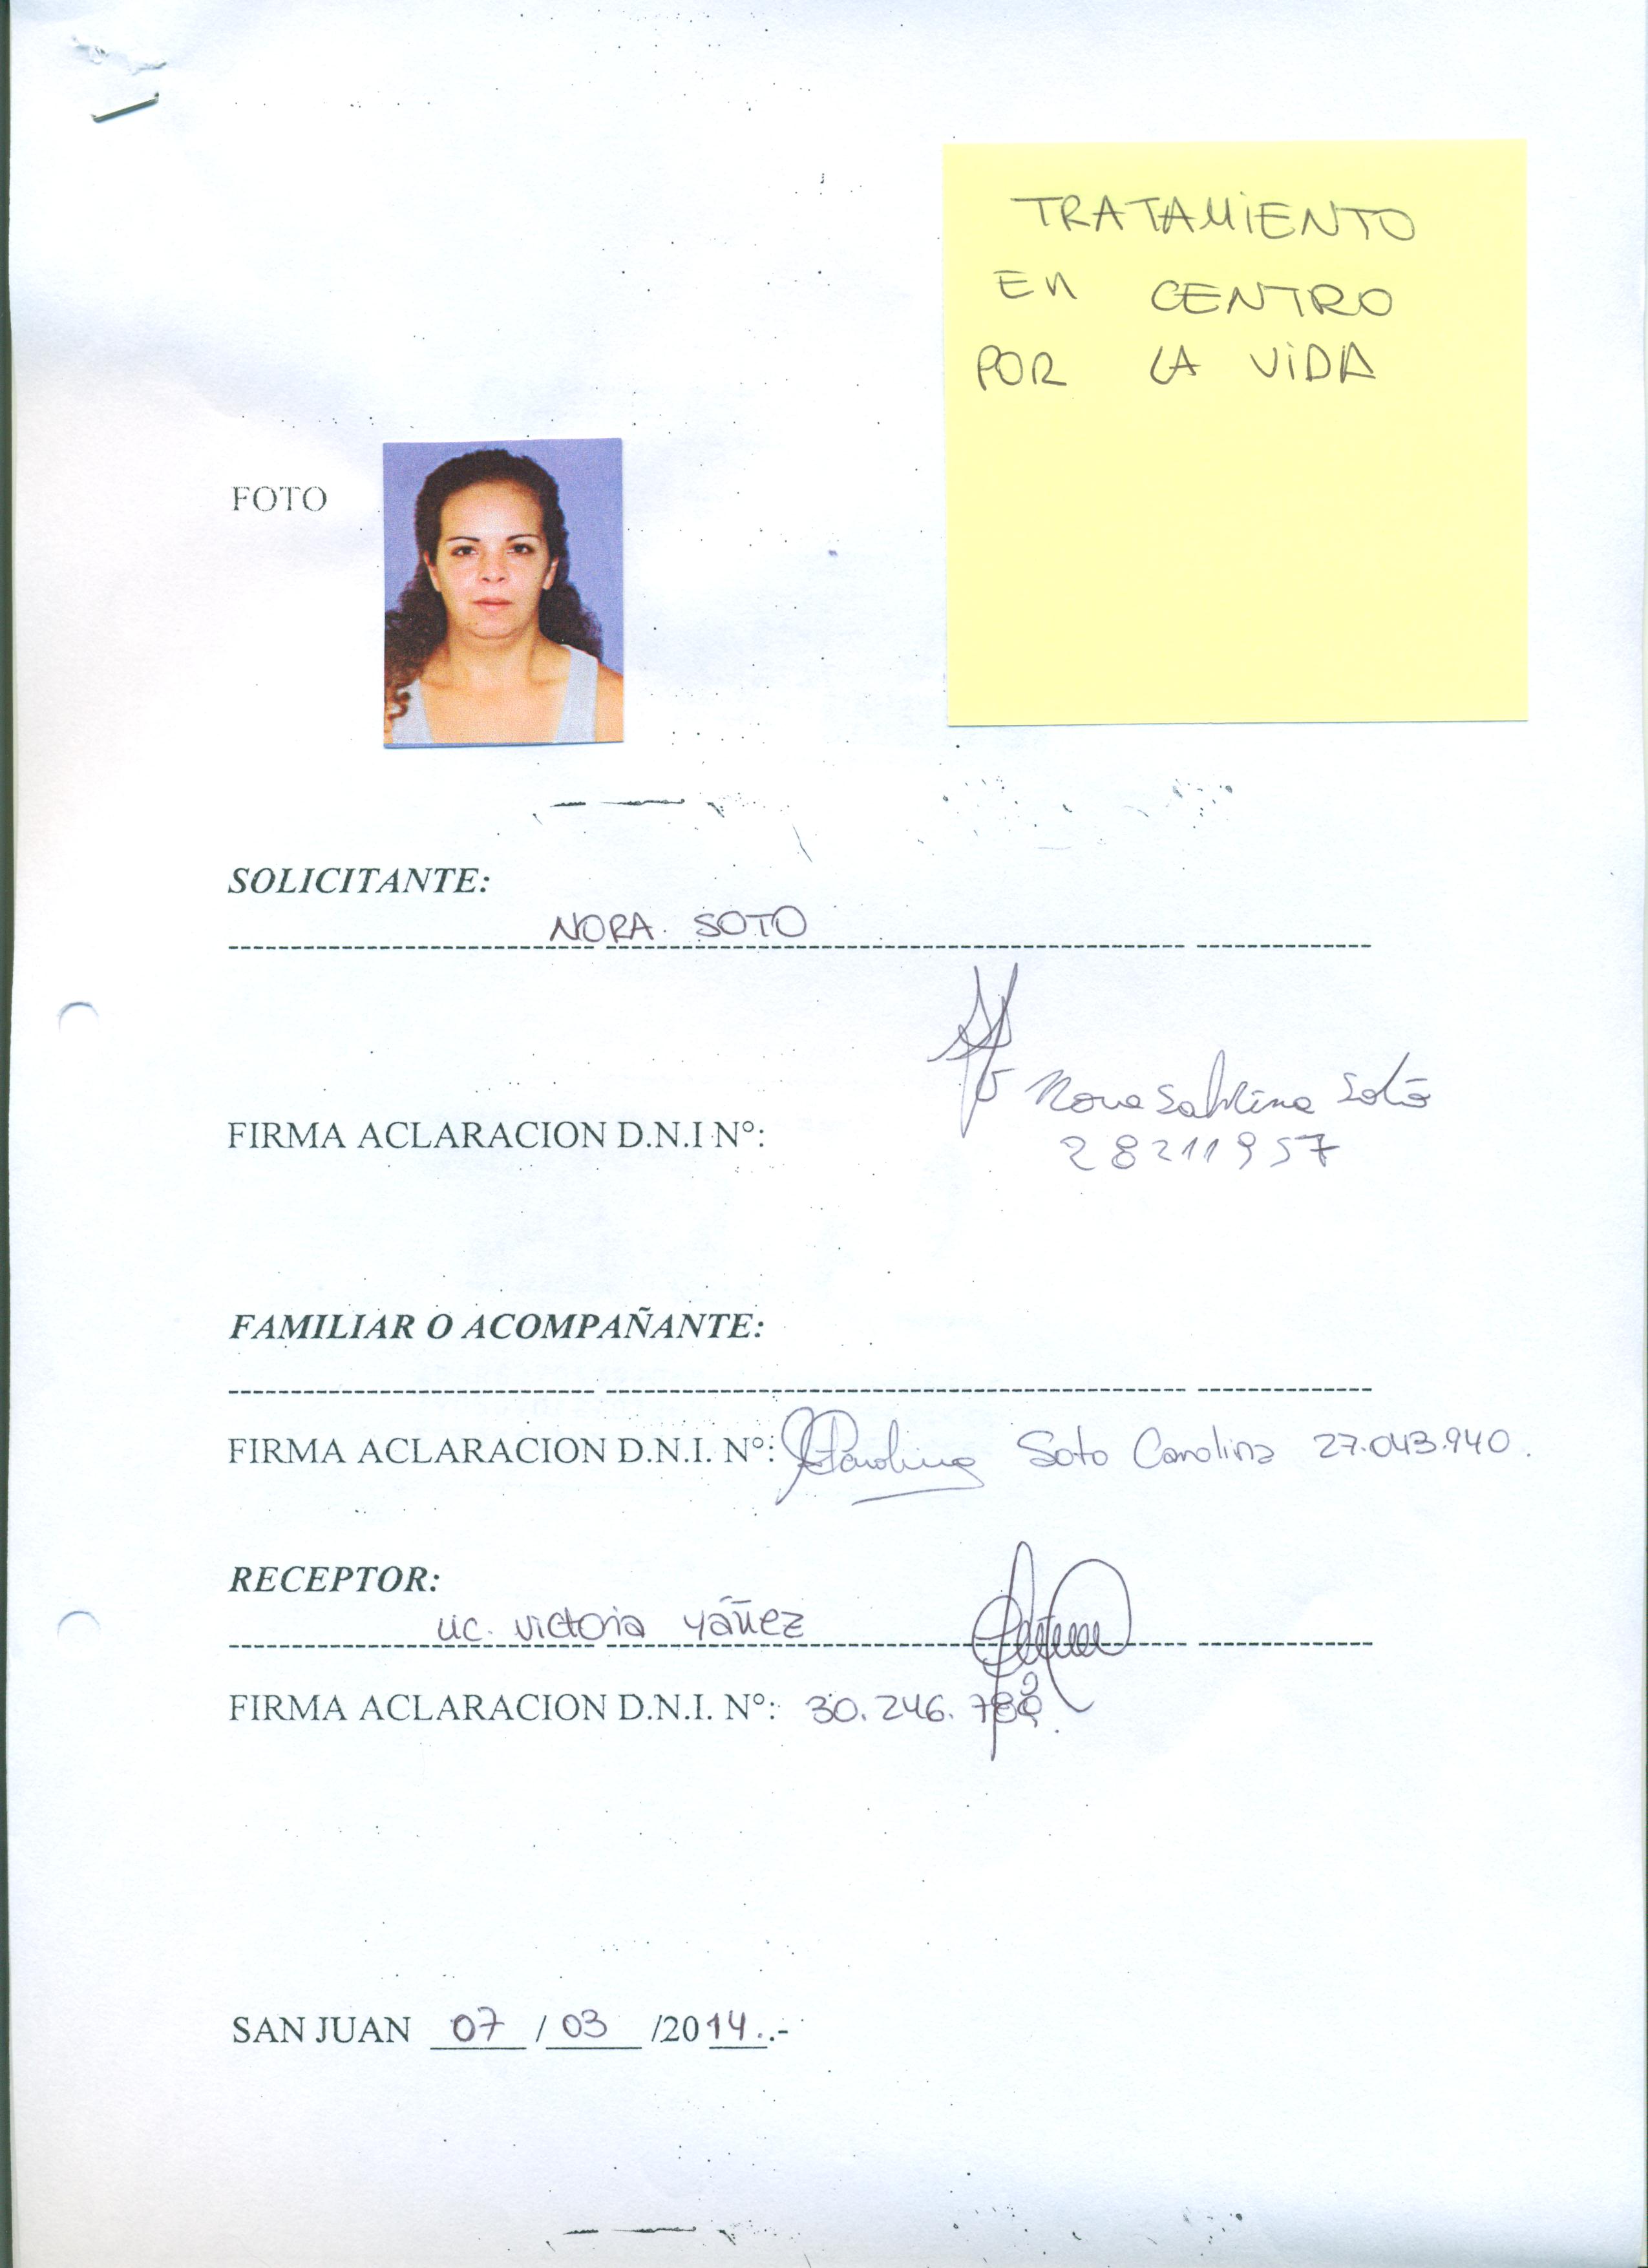 TRATAMIENTO
EN CENTRO
POR LA VIDA
FOTO
SOLICITANTE:
NORA SOTO
Nora Sabrina Soto
FIRMA ACLARACION D.N.I Nº:
28211957
FAMILIAR O ACOMPAÑANTE:
FIRMA ACLARACION D.N.I. Nº: Carolina Soto Carolina 27.043.940.
RECEPTOR:
Lic. Victoria Yáñez
FIRMA ACLARACION D.N.I. Nº: 30.246.
SAN JUAN 07 / 03 /2014..-